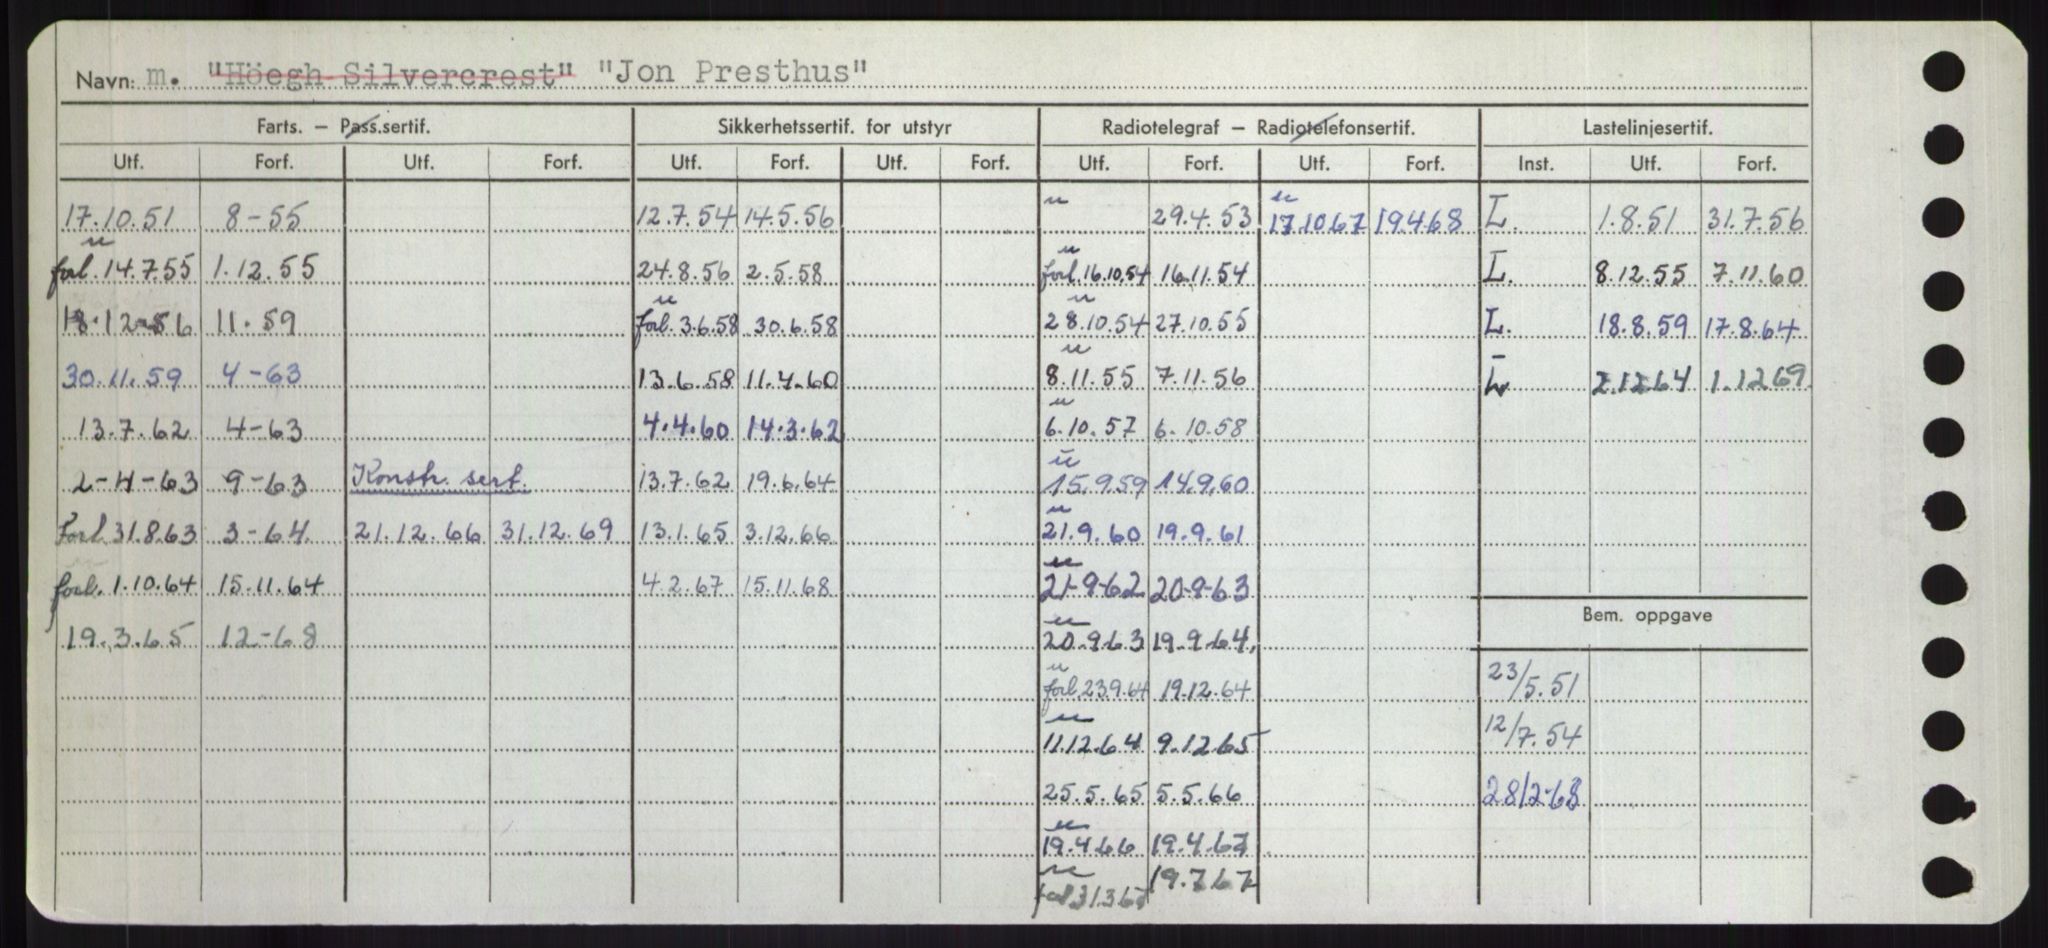 Navn: m. "Höegh Silvercrest" "Jon Presthus"
Farts. – Pass.sertif. Sikkerhetssertif. for utstyr Radiotelegraf – Radiotelefonsertif. Lastelinjesertif.
Utf. Forf. Utf. Forf. Utf. Forf. Utf. Forf. Utf. Forf. Utf. Forf. Inst. Utf. Forf.
17.10.51 8-55 12.7.54 14.5.56 u 29.4.53 u 17.10.67 19.4.68 L. 1.8.51 31.7.56
u forl. 14.7.55 1.12.55 24.8.56 2.5.58 u forl. 16.10.54 16.11.54 L. 8.12.55 7.11.60
18.12.56 11.59 u forl. 3.6.58 30.6.58 u 28.10.54 27.10.55 L. 18.8.59 17.8.64
30.11.59 4-63 13.6.58 11.4.60 u 8.11.55 7.11.56 L 2.12.64 1.12.69
13.7.62 4-63 4.4.60 14.3.62 u 6.10.57 6.10.58
2-4-63 9-63 Konstr. sert. 13.7.62 19.6.64 u 15.9.59 14.9.60
Forl 31.8.63 3-64 21.12.66 31.12.69 13.1.65 3.12.66 u 21.9.60 19.9.61
forl. 1.10.64 15.11.64 4.2.67 15.11.68 u 21-9-62 20-9-63
Bem. oppgave
19.3.65 12-68 u 20.9.63 19.9.64.
u forl. 23.9.64 19.12.64 23/5.51
u 11.12.64 9.12.65 12/7.54
25.5.65 5.5.66 28/2-68
u 19.4.66 19.4.67
u forl 31.3.67 19.7.67